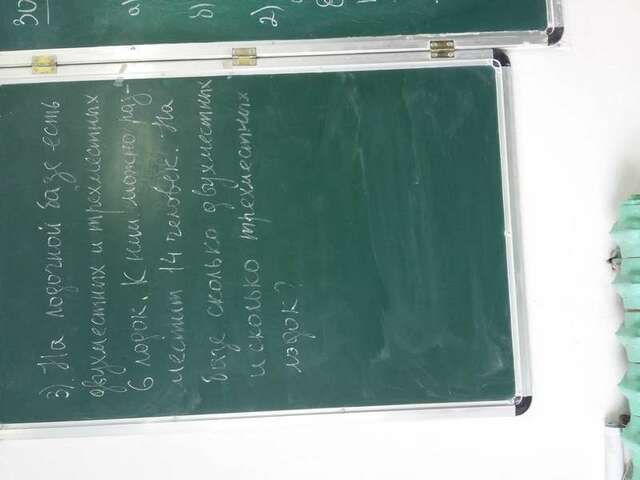 3) На лодочной базе есть
двухместных и трехместных
6 лодок. К ним можно раз-
местит 14 человек. На
базе сколько двухместных
и сколько трехместных
лодок?
30
а)
б)
2)